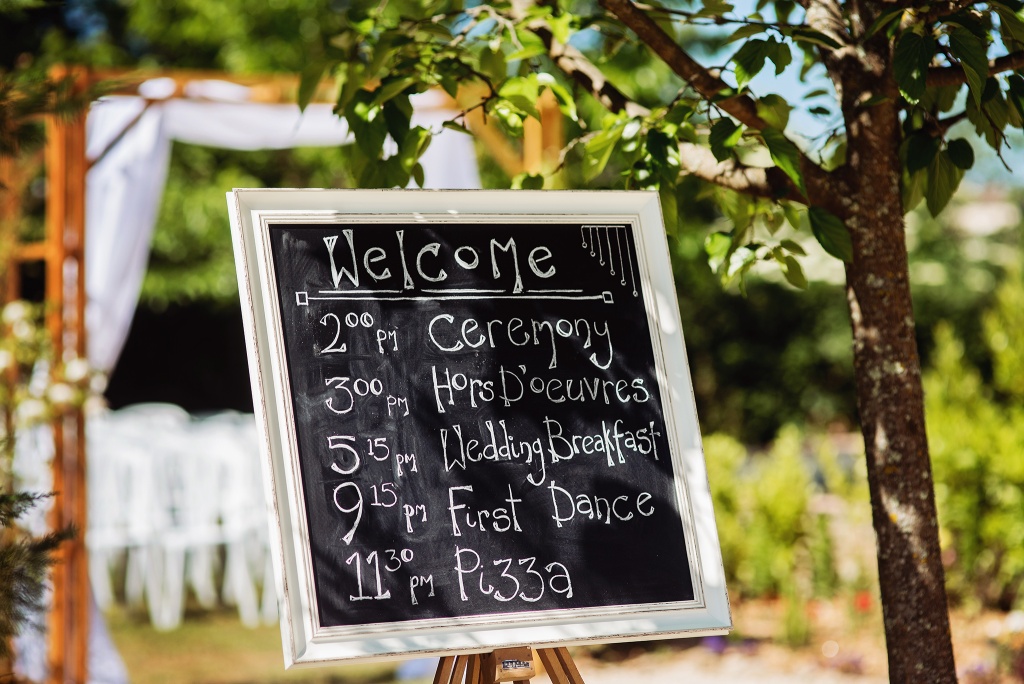 Welcome
2 00 pm Ceremony
3 00 pm Hors D'oeuvres
5 15 pm Wedding Breakfast
9 15 pm First Dance
11 30 pm Pizza